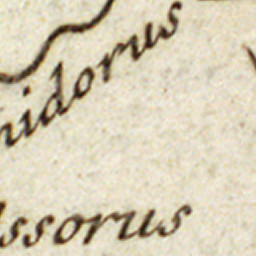 nidorus
ssorus